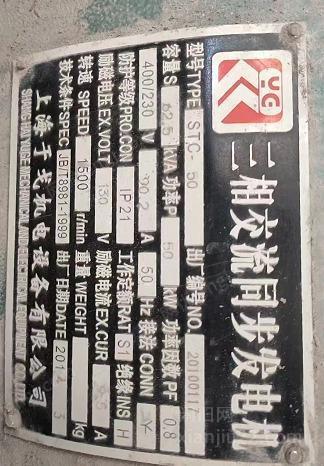 三相交流同步发电机
型号TYPE STC-50 出厂编号NO. 20100117
容量S 62.5 kVA 功率P 50 kW 功率因数PF 0.8
400/230 V 90.2 A 50 Hz 接法CONN Y
防护等级PRO.CON IP21 工作定额RAT S1 绝缘INS H
励磁电压EX.VOLT 130 V 励磁电流EX.CUR A
转速 SPEED 1500 r/min 重量 WEIGHT kg
技术条件SPEC JB/T8981-1999 出厂日期DATE 201
上海于戈机电设备有限公司
SHANGHAI YUGE MECHANICAL AND ELECTRICAL EQUIPMENT CO.,LTD.